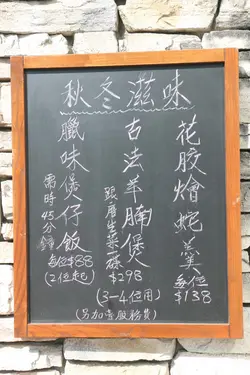 秋冬滋味
花膠燴蛇羹
每位
$138
古法羊腩煲
跟唐生菜一碟
$298
(3-4位用)
臘味煲仔飯
需時
45分
鐘
每位$88
(2位起)
(另加壹服務費)